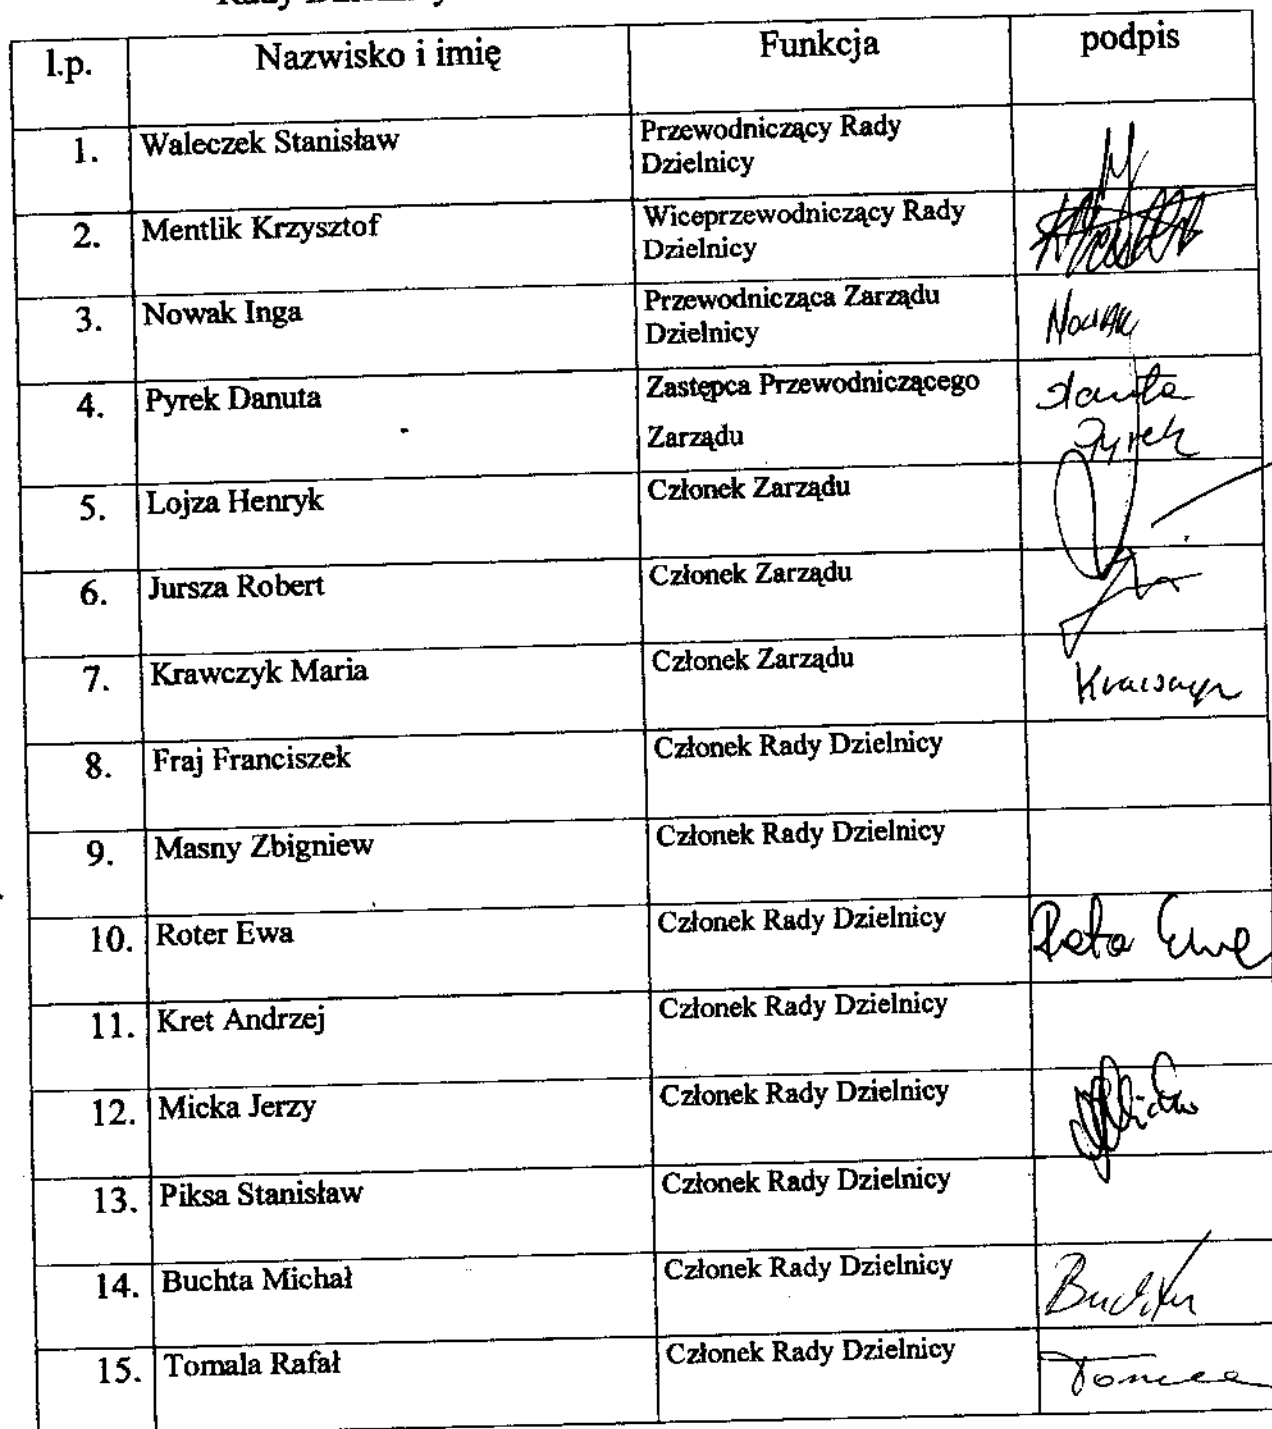 l.p. Nazwisko i imię Funkcja podpis
1. Waleczek Stanisław Przewodniczący Rady
Dzielnicy
2. Mentlik Krzysztof Wiceprzewodniczący Rady
Dzielnicy
3. Nowak Inga Przewodnicząca Zarządu Nowak
Dzielnicy
4. Pyrek Danuta Zastępca Przewodniczącego Danuta
Zarządu Pyrek
5. Lojza Henryk Członek Zarządu
6. Jursza Robert Członek Zarządu
7. Krawczyk Maria Członek Zarządu Krawczyk
8. Fraj Franciszek Członek Rady Dzielnicy
9. Masny Zbigniew Członek Rady Dzielnicy
10. Roter Ewa Członek Rady Dzielnicy Roter Ewa
11. Kret Andrzej Członek Rady Dzielnicy
12. Micka Jerzy Członek Rady Dzielnicy
13. Piksa Stanisław Członek Rady Dzielnicy
14. Buchta Michał Członek Rady Dzielnicy Buchta
15. Tomala Rafał Członek Rady Dzielnicy